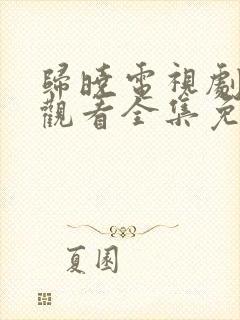 歸曉電視劇
觀看全集免
夏園